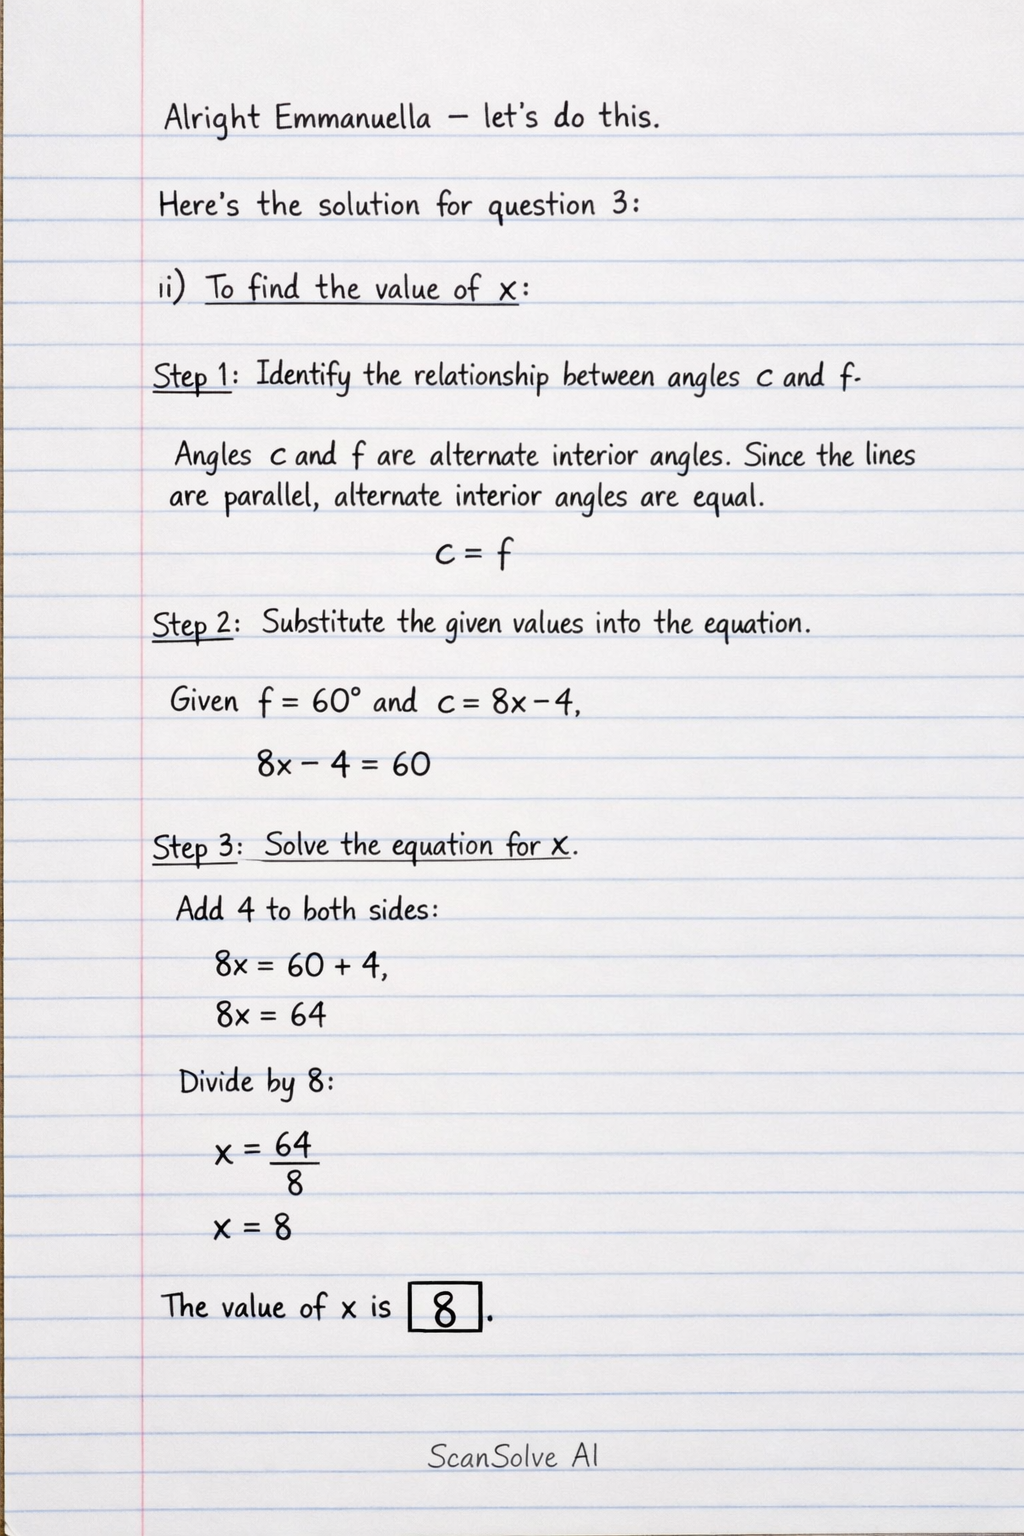 Alright Emmanuella – let's do this.
Here's the solution for question 3:
ii) To find the value of x:
Step 1: Identify the relationship between angles c and f.
Angles c and f are alternate interior angles. Since the lines
are parallel, alternate interior angles are equal.
c = f
Step 2: Substitute the given values into the equation.
Given f = 60° and c = 8x – 4,
8x – 4 = 60
Step 3: Solve the equation for x.
Add 4 to both sides:
8x = 60 + 4,
8x = 64
Divide by 8:
x = 64/8
x = 8
The value of x is 8.
ScanSolve AI